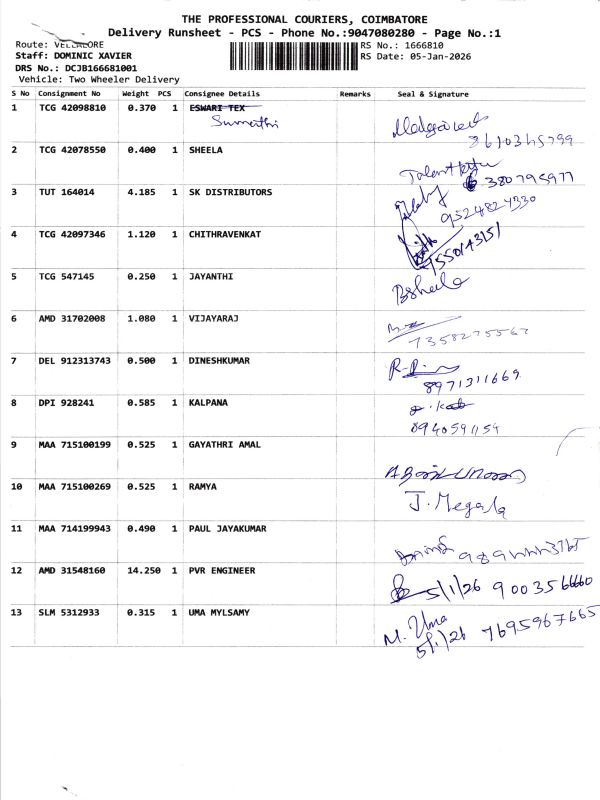 THE PROFESSIONAL COURIERS, COIMBATORE
Delivery Runsheet - PCS - Phone No.:9047080280 - Page No.:1
Route: VELLALORE
Staff: DOMINIC XAVIER
DRS No.: DCJB166681001
Vehicle: Two Wheeler Delivery
RS No.: 1666810
RS Date: 05-Jan-2026
S No Consignment No Weight PCS Consignee Details Remarks Seal & Signature
1 TCG 42098810 0.370 1 ESWARI TEX
Sumathi
2 TCG 42078550 0.400 1 SHEELA
3 TUT 164014 4.185 1 SK DISTRIBUTORS
9524824330
4 TCG 42097346 1.120 1 CHITHRAVENKAT
5 TCG 547145 0.250 1 JAYANTHI
BSheela
6 AMD 31702008 1.080 1 VIJAYARAJ
7358275562
7 DEL 912313743 0.500 1 DINESHKUMAR
8971311669
8 DPI 928241 0.585 1 KALPANA
8940591154
9 MAA 715100199 0.525 1 GAYATHRI AMAL
10 MAA 715100269 0.525 1 RAMYA
J. Megala
11 MAA 714199943 0.490 1 PAUL JAYAKUMAR
12 AMD 31548160 14.250 1 PVR ENGINEER
5/1/26 9003566660
13 SLM 5312933 0.315 1 UMA MYLSAMY
M. Uma
5/1/26 7695967665